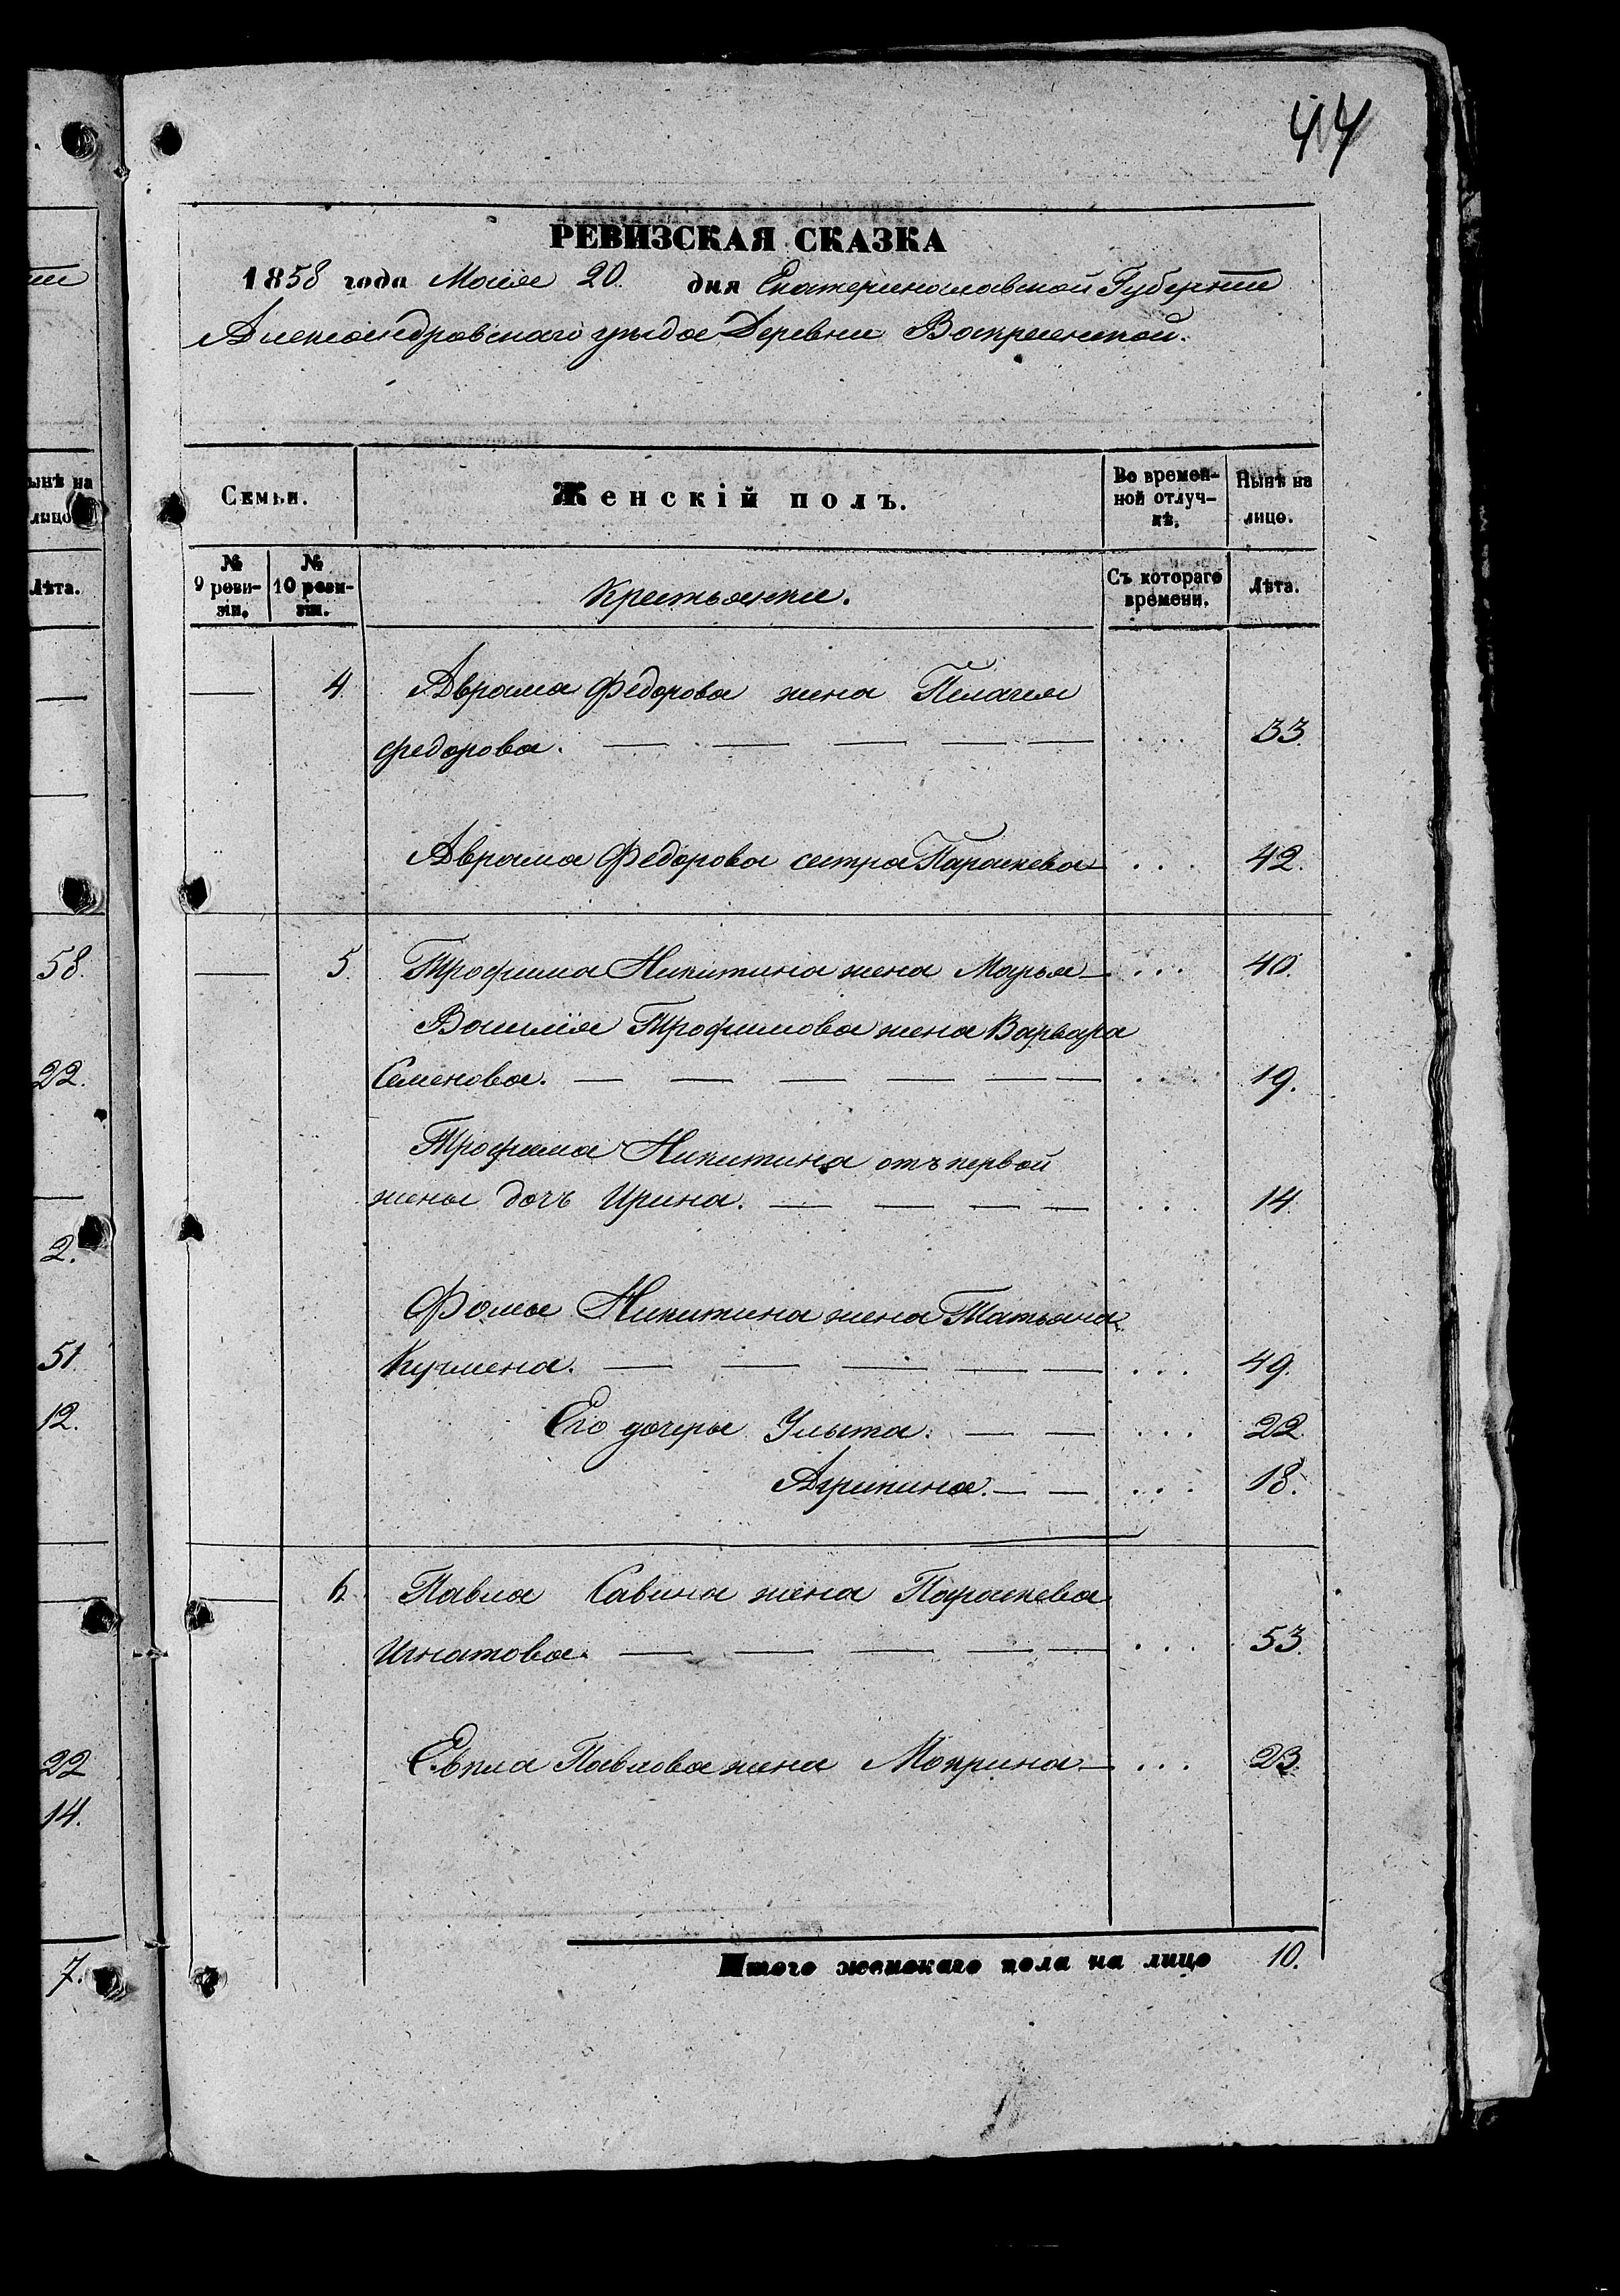 44
РЕВИЗСКАЯ СКАЗКА
1858 года Маія 20. дня Екатеринославской Губерніи
Александровскаго уѣзда Деревни Воскресенской.
ынѣ на
лицо
Лѣта.
58.
22.
2.
51.
12.
22
14.
7.
Семьи. Женскій полъ. Во времен-
ной отлуч-
кѣ. Нынѣ на
лицо.
№
9 реви-
зіи. №
10 реви-
зіи. Крестьянки. Съ котораго
времени. Лѣта.
— 4. Аврама Федорова жена Пелагея
Федорова. — — — — — .... 33.
Аврама Федорова сестра Парасkева — ... 42.
— 5. Трофима Никитина жена Марья — ... 40.
Василія Трофимова жена Варвара
Семенова. — — — — — — .... 19.
Трофима Никитина отъ первой
жены дочь Ирина. — — — — ... 14.
Фомы Никитина жена Татьяна
Кузмена. — — — — — ... 49.
Его дочеры Улыта. — — ... 22.
Агрипина. — — ... 18.
— 6. Павла Савина жена Параскева
Игнатова. — — — — — ... 53.
Евпла Павлова жена Мокрина — ... 23.
Итого женскаго пола на лицо 10.